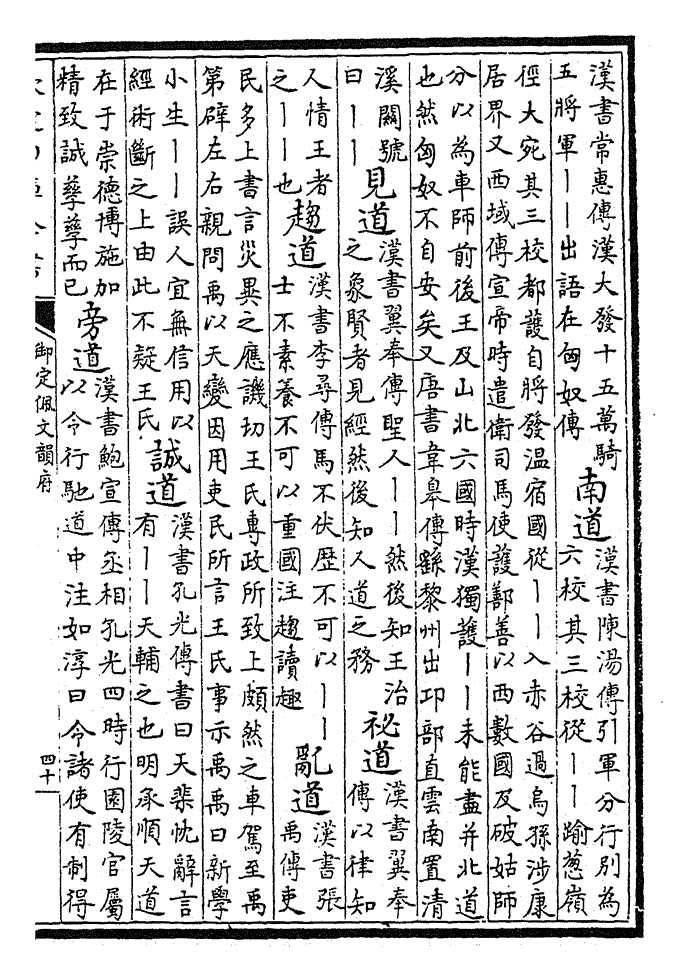 漢書常惠傳漢大發十五萬騎
五將軍丨丨出語在匈奴傳
南道
漢書陳湯傳引軍分行别為
六校其三校從丨丨踰葱嶺
徑大宛其三校都護自將發温宿國從丨丨入赤谷過烏孫涉康
居界又西域傳宣帝時遣衛司馬使護鄯善以西數國及破姑師
分以為車師前後王及山北六國時漢獨護丨丨未能盡并北道
也然匈奴不自安矣又唐書韋臯傳繇黎州出邛部直雲南置清
溪關號
曰丨丨
見道
漢書翼奉傳聖人丨丨然後知王治
之象賢者見經然後知人道之務
祕道
漢書翼奉
傳以律知
人情王者
之丨丨也
趨道
漢書李尋傳馬不伏歴不可以丨丨
士不素養不可以重國注趨讀趣
亂道
漢書張
禹傳吏
民多上書言災異之應譏切王氏專政所致上頗然之車駕至禹
第辟左右親問禹以天變因用吏民所言王氏事示禹禹曰新學
小生丨丨誤人宜無信用以
經術斷之上由此不疑王氏
誠道
漢書孔光傳書曰天棐忱辭言
有丨丨天輔之也明承順天道
在于崇德博施加
精致誠孳孳而已
旁道
漢書鮑宣傳丞相孔光四時行園陵官屬
以令行馳道中注如淳曰令諸使有制得
御定佩文韻府
四十